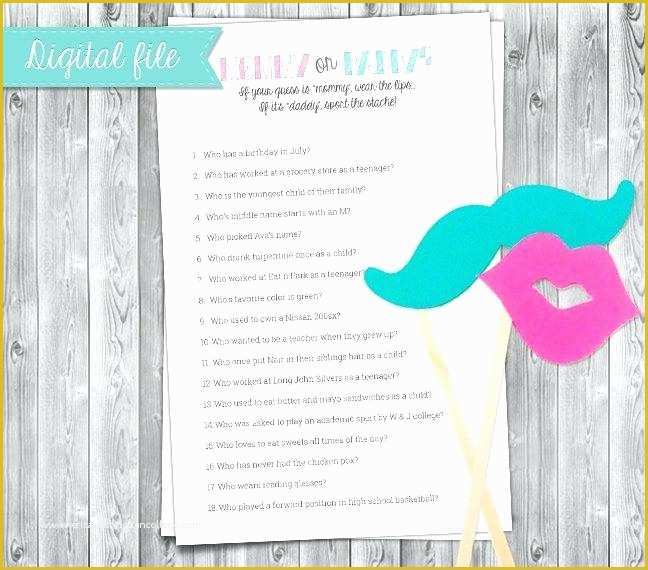 Digital file
MOMMY or DADDY?
If your guess is "mommy", wear the lips...
If it's "daddy", sport the stache!
1. Who has a birthday in July?
2. Who has worked at a grocery store as a teenager?
3. Who is the youngest child of their family?
4. Who's middle name starts with an M?
5. Who picked Ava's name?
6. Who drank turpentine once as a child?
7. Who worked at Eat n Park as a teenager?
8. Who's favorite color is green?
9. Who used to own a Nissan 200sx?
10. Who wanted to be a teacher when they grew up?
11. Who once put Nair in their siblings hair as a child?
12. Who worked at Long John Silvers as a teenager?
13. Who used to eat butter and mayo sandwiches as a child?
14. Who was asked to play an academic sport by W & J college?
15. Who loves to eat sweets all times of the day?
16. Who has never had the chicken pox?
17. Who wears reading glasses?
18. Who played a forward position in high school basketball?